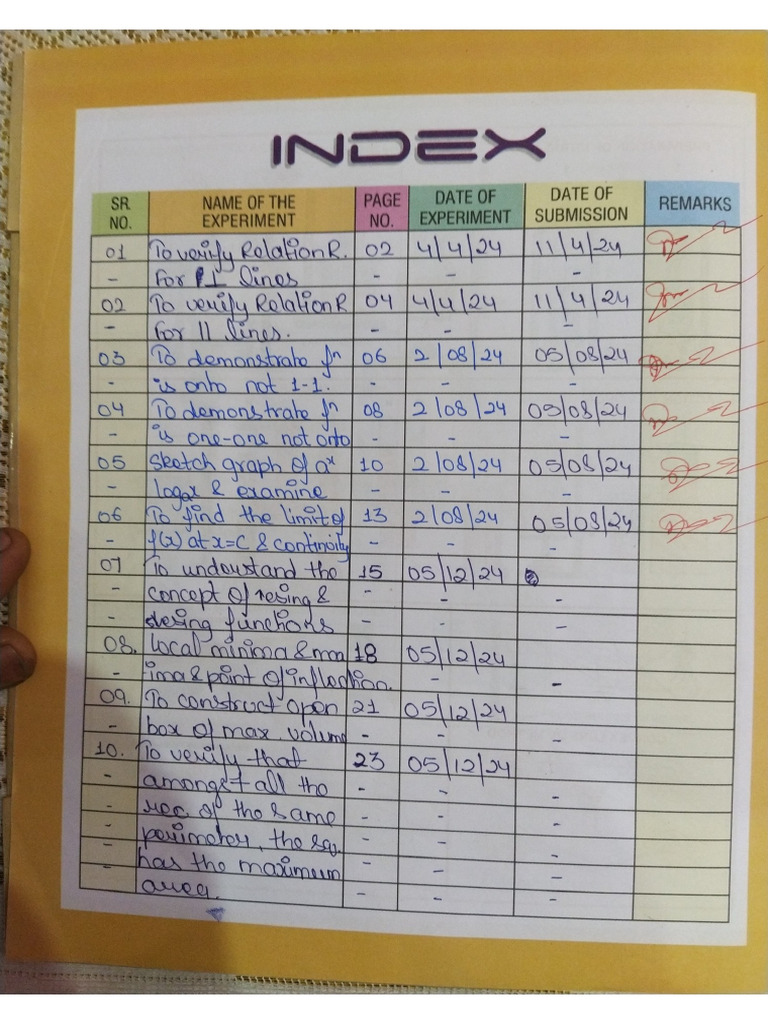 INDEX
SR. NO. NAME OF THE EXPERIMENT PAGE NO. DATE OF EXPERIMENT DATE OF SUBMISSION REMARKS
01 To verify Relation R. 02 4/4/24 11/4/24
- For ⊥ lines - -
02 To verify Relation R 04 4/4/24 11/4/24
- For || lines. - - -
03 To demonstrate fn 06 2/08/24 05/08/24
- is onto not 1-1. - - -
04 To demonstrate fn 08 2/08/24 05/08/24
- is one-one not onto - - -
05 Sketch graph of aˣ 10 2/08/24 05/08/24
- logₐx & examine - - -
06 To find the limit of 13 2/08/24 05/08/24
- f(x) at x=C & continuity - - -
07 To understand the 15 05/12/24
- concept of resing & - - -
- desing functions - - -
08. local minima & max 18 05/12/24
- ima & point of inflection. - -
09. To construct open 21 05/12/24
- box of max. volume - - -
10. To verify that 23 05/12/24
- amongst all the - - -
- rec of the same - - -
- perimeter, the sq. - - -
- has the maximum - - -
- area. - - -